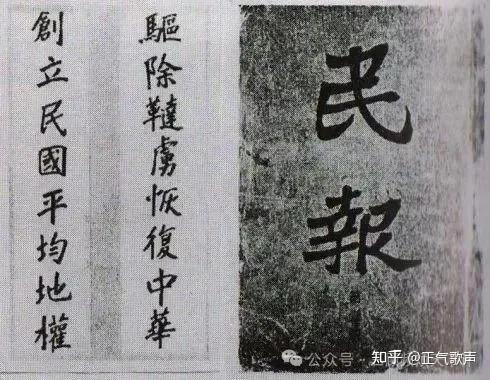 驅除韃虜恢復中華
創立民國平均地權
民報
公众号
知乎 @正气歌声